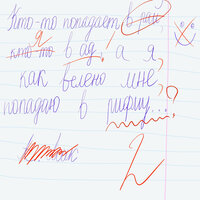 Кто-то попадает в рай,
кто-то в ад, а я,
как велено мне,
попадаю в рифму...
2